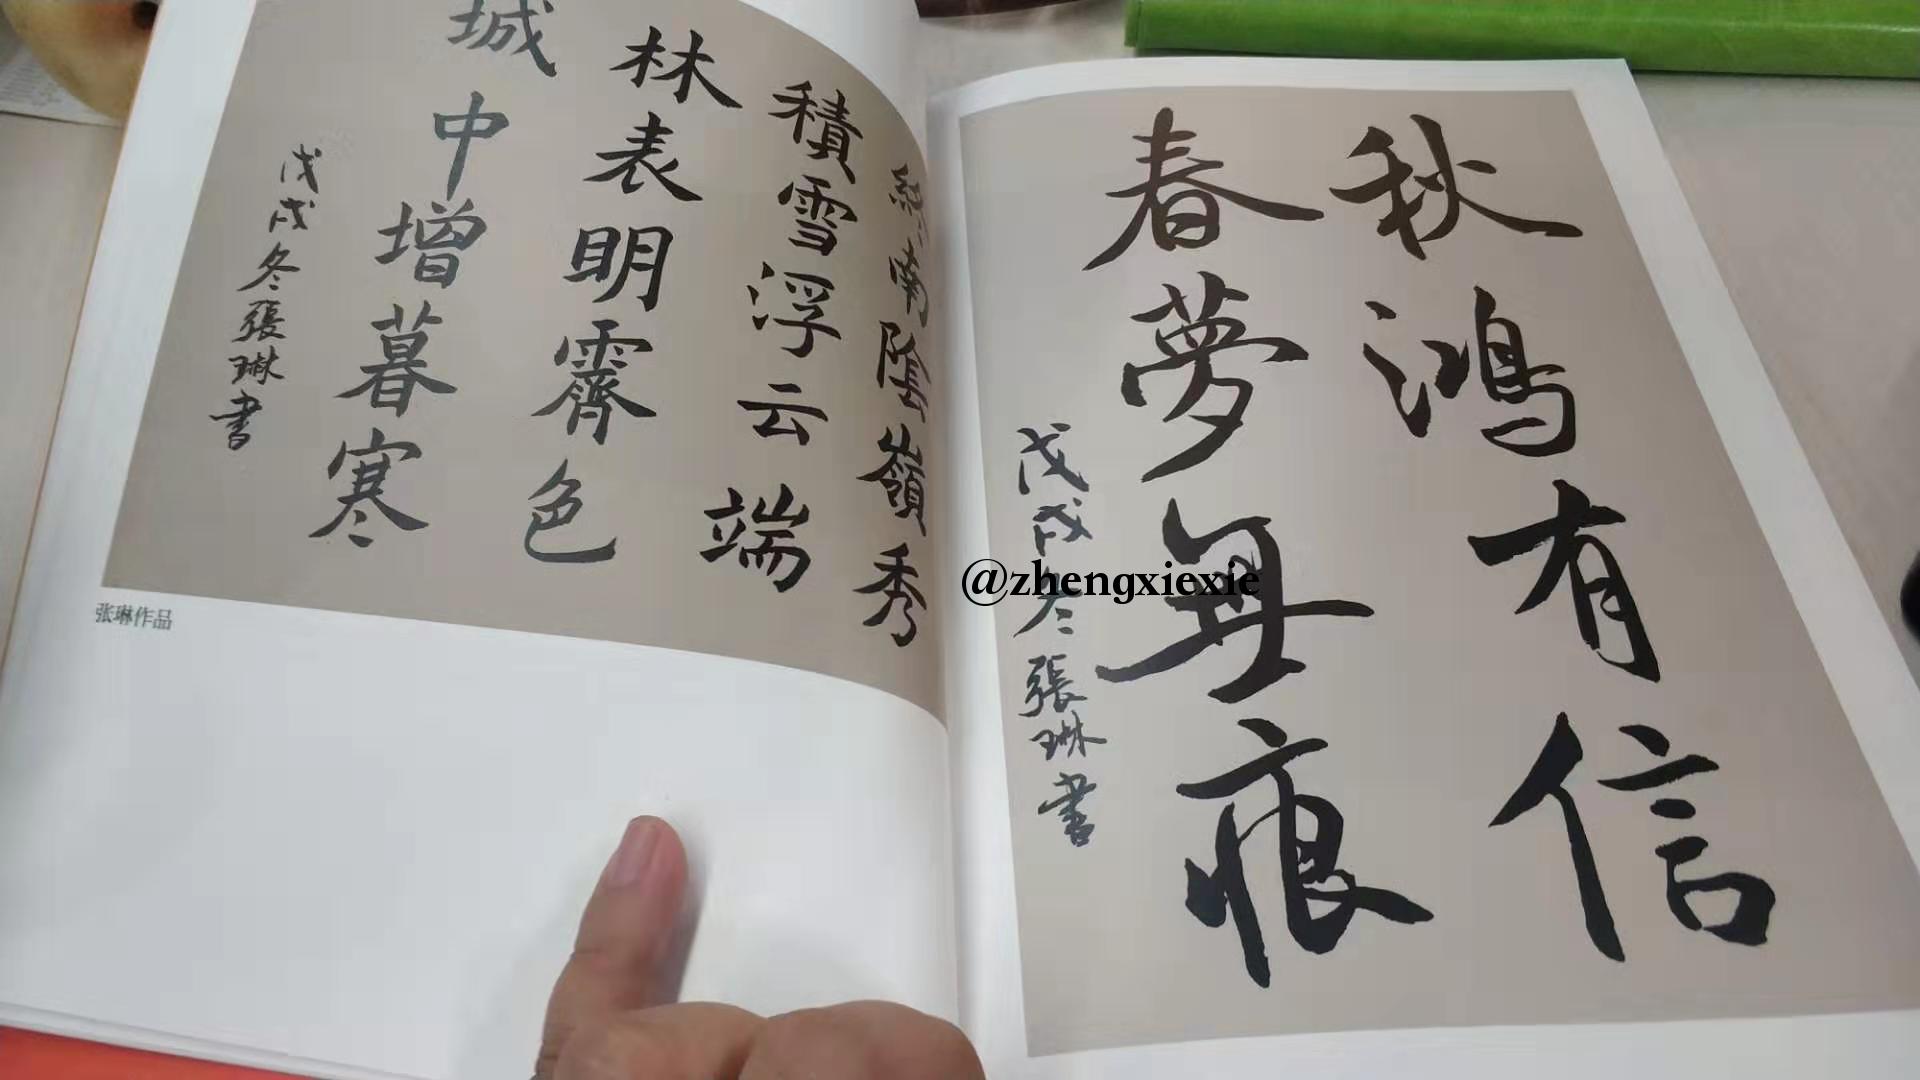 終南陰嶺秀
積雪浮云端
林表明霽色
城中增暮寒
戊戌冬張琳書
张琳作品
秋鴻有信
春夢無痕
戊戌冬張琳書
@zhengxiexie